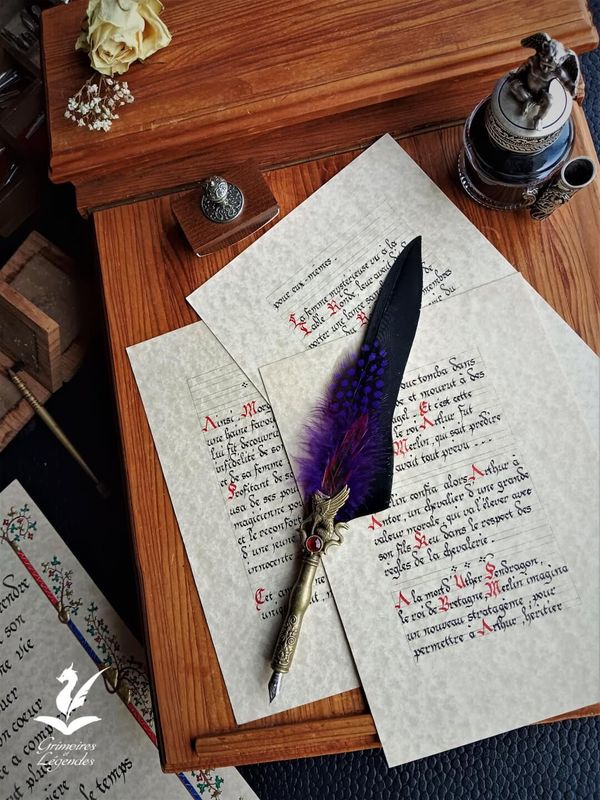 pour eux-mêmes.
La femme mystérieuse vu à la
Table Ronde, leur avait
porter une lance sans
du
Ainsi, Mor
une haine farou
lui fit découvri
infidélité de so
et de sa femme
Profitant de so
usa de ses pou
magicienne po
et le réconfor
d'une jeune
innocente
Cet
unique
duc tomba dans
de et mourut à des
agel. Et c'est cette
le roi Arthur fut
Merlin, qui sait prédire
avait tout prévu ...
lin confia alors Arthur à
Antor, un chevalier d'une grande
valeur morale, qui va l'élever avec
son fils Keu dans le respect des
règles de la chevalerie.
A la mort d'Uther Pendragon,
le roi de Bretagne, Merlin imagina
un nouveau stratagème pour
permettre à Arthur, héritier
endre
son
ne vie
uer
on coeur
ce à comp
plus
ière le temps
Grimoires
et
Légendes